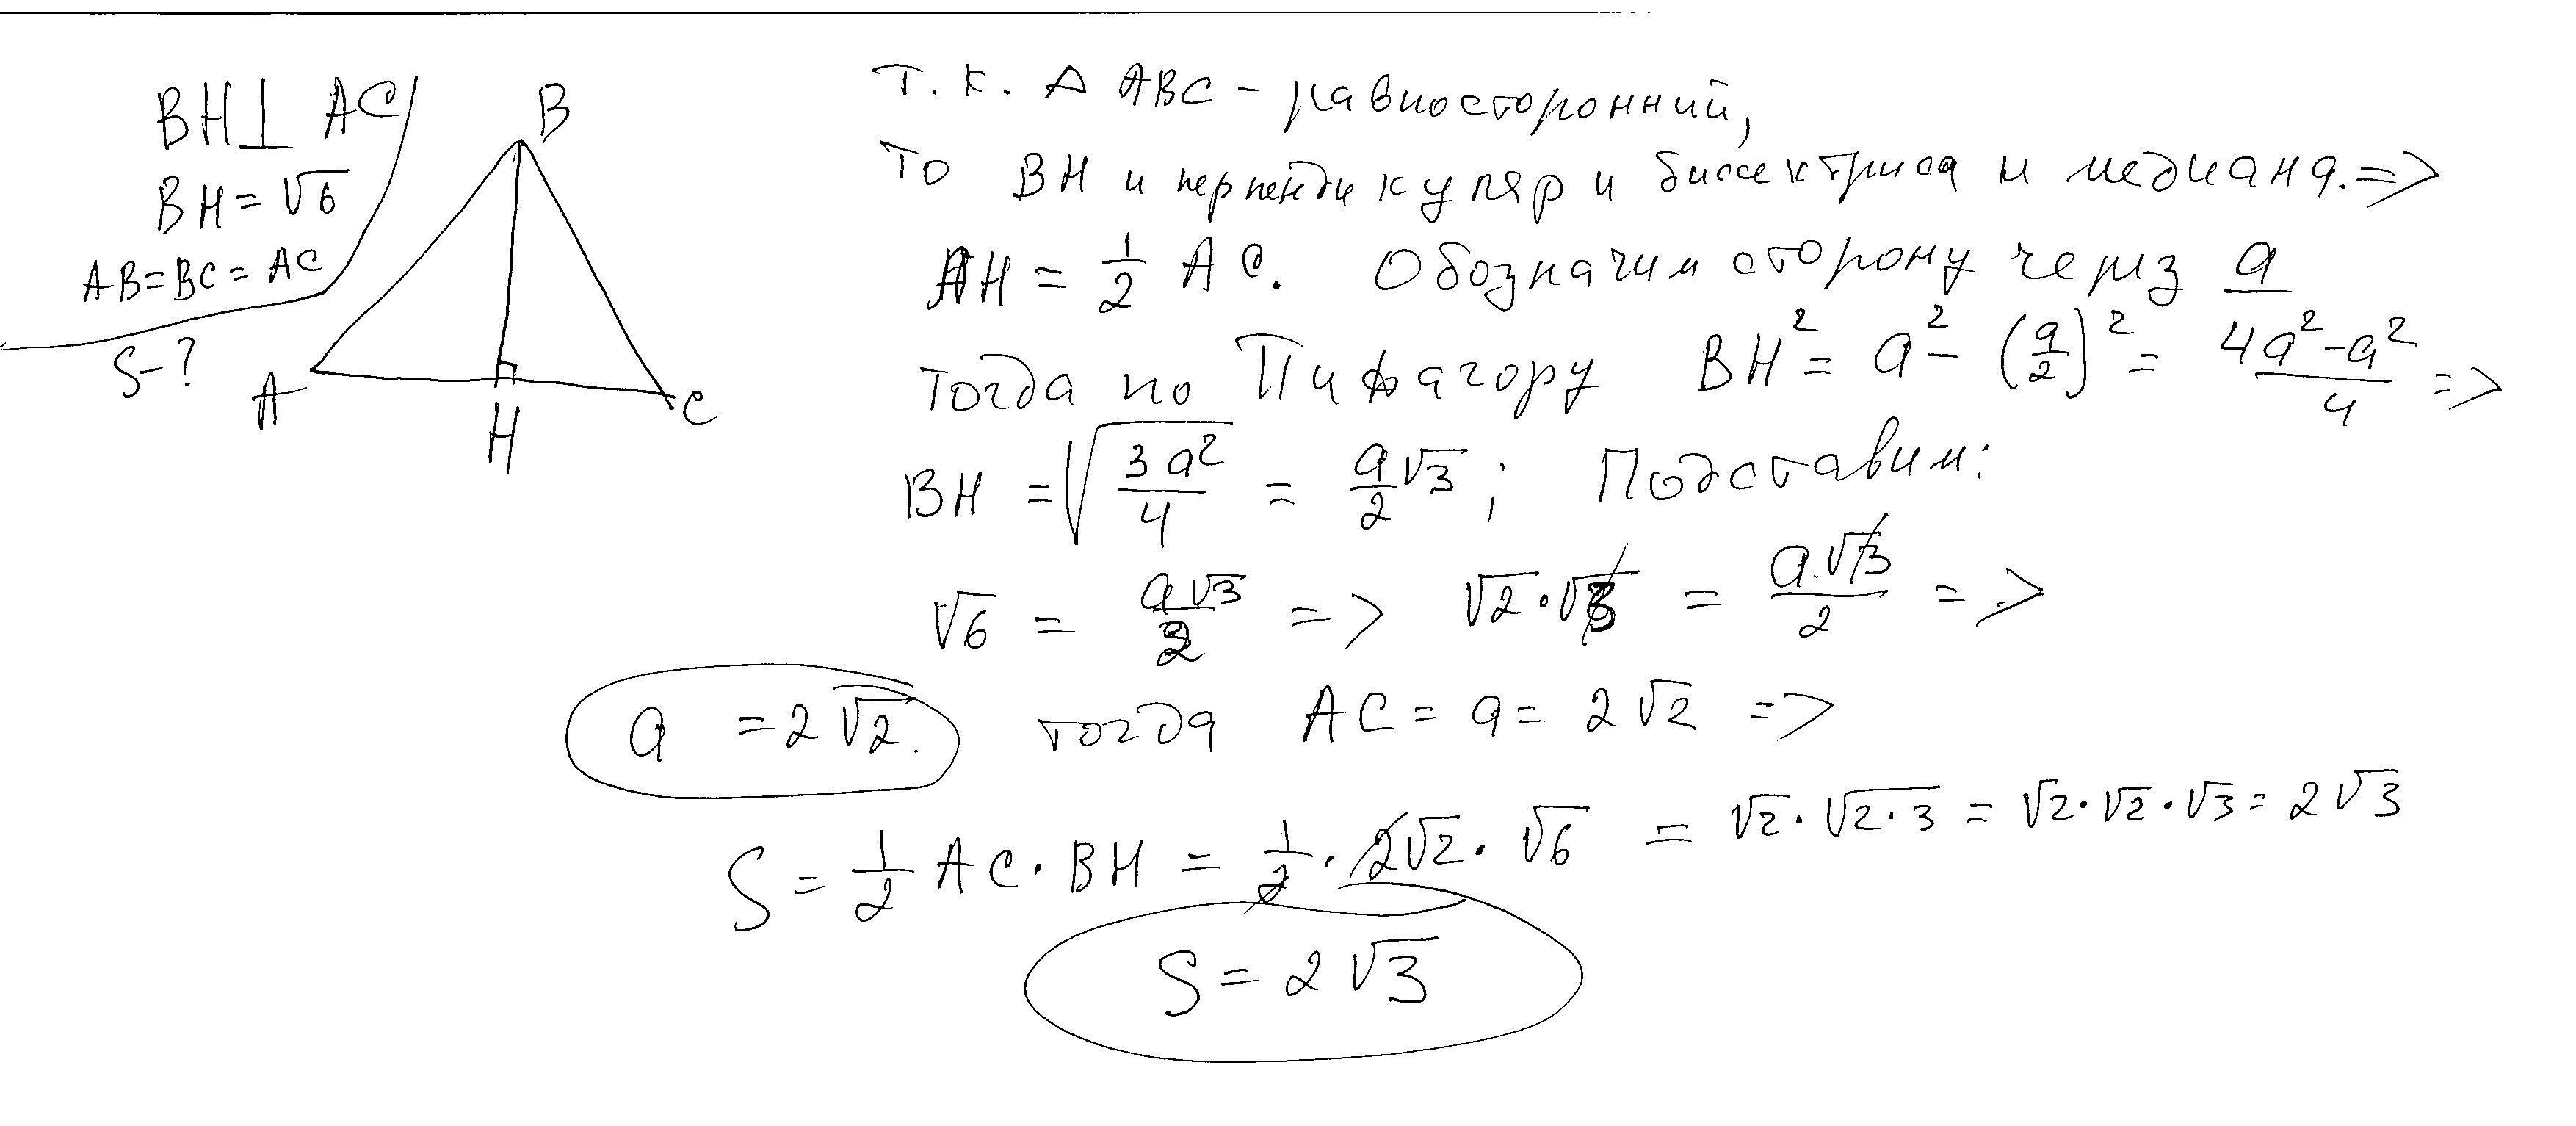 BH⊥ AC
BH = √6
AB = BC = AC
S - ?
B
A
H
C
Т. к. Δ ABC - равносторонний,
то BH и перпендикуляр и биссектриса и медиана. =>
AH = 1/2 AC. Обозначим сторону через a
тогда по Пифагору BH² = a² - (a/2)² = (4a² - a²)/4 =>
BH = √(3a²/4) = a/2 √3 ; Подставим:
√6 = a√3/2 => √2 · √3 = a·√3/2 =>
a = 2√2. тогда AC = a = 2√2 =>
S = 1/2 AC · BH = 1/2 · 2√2 · √6 = √2 · √(2·3) = √2 · √2 · √3 = 2√3
S = 2√3